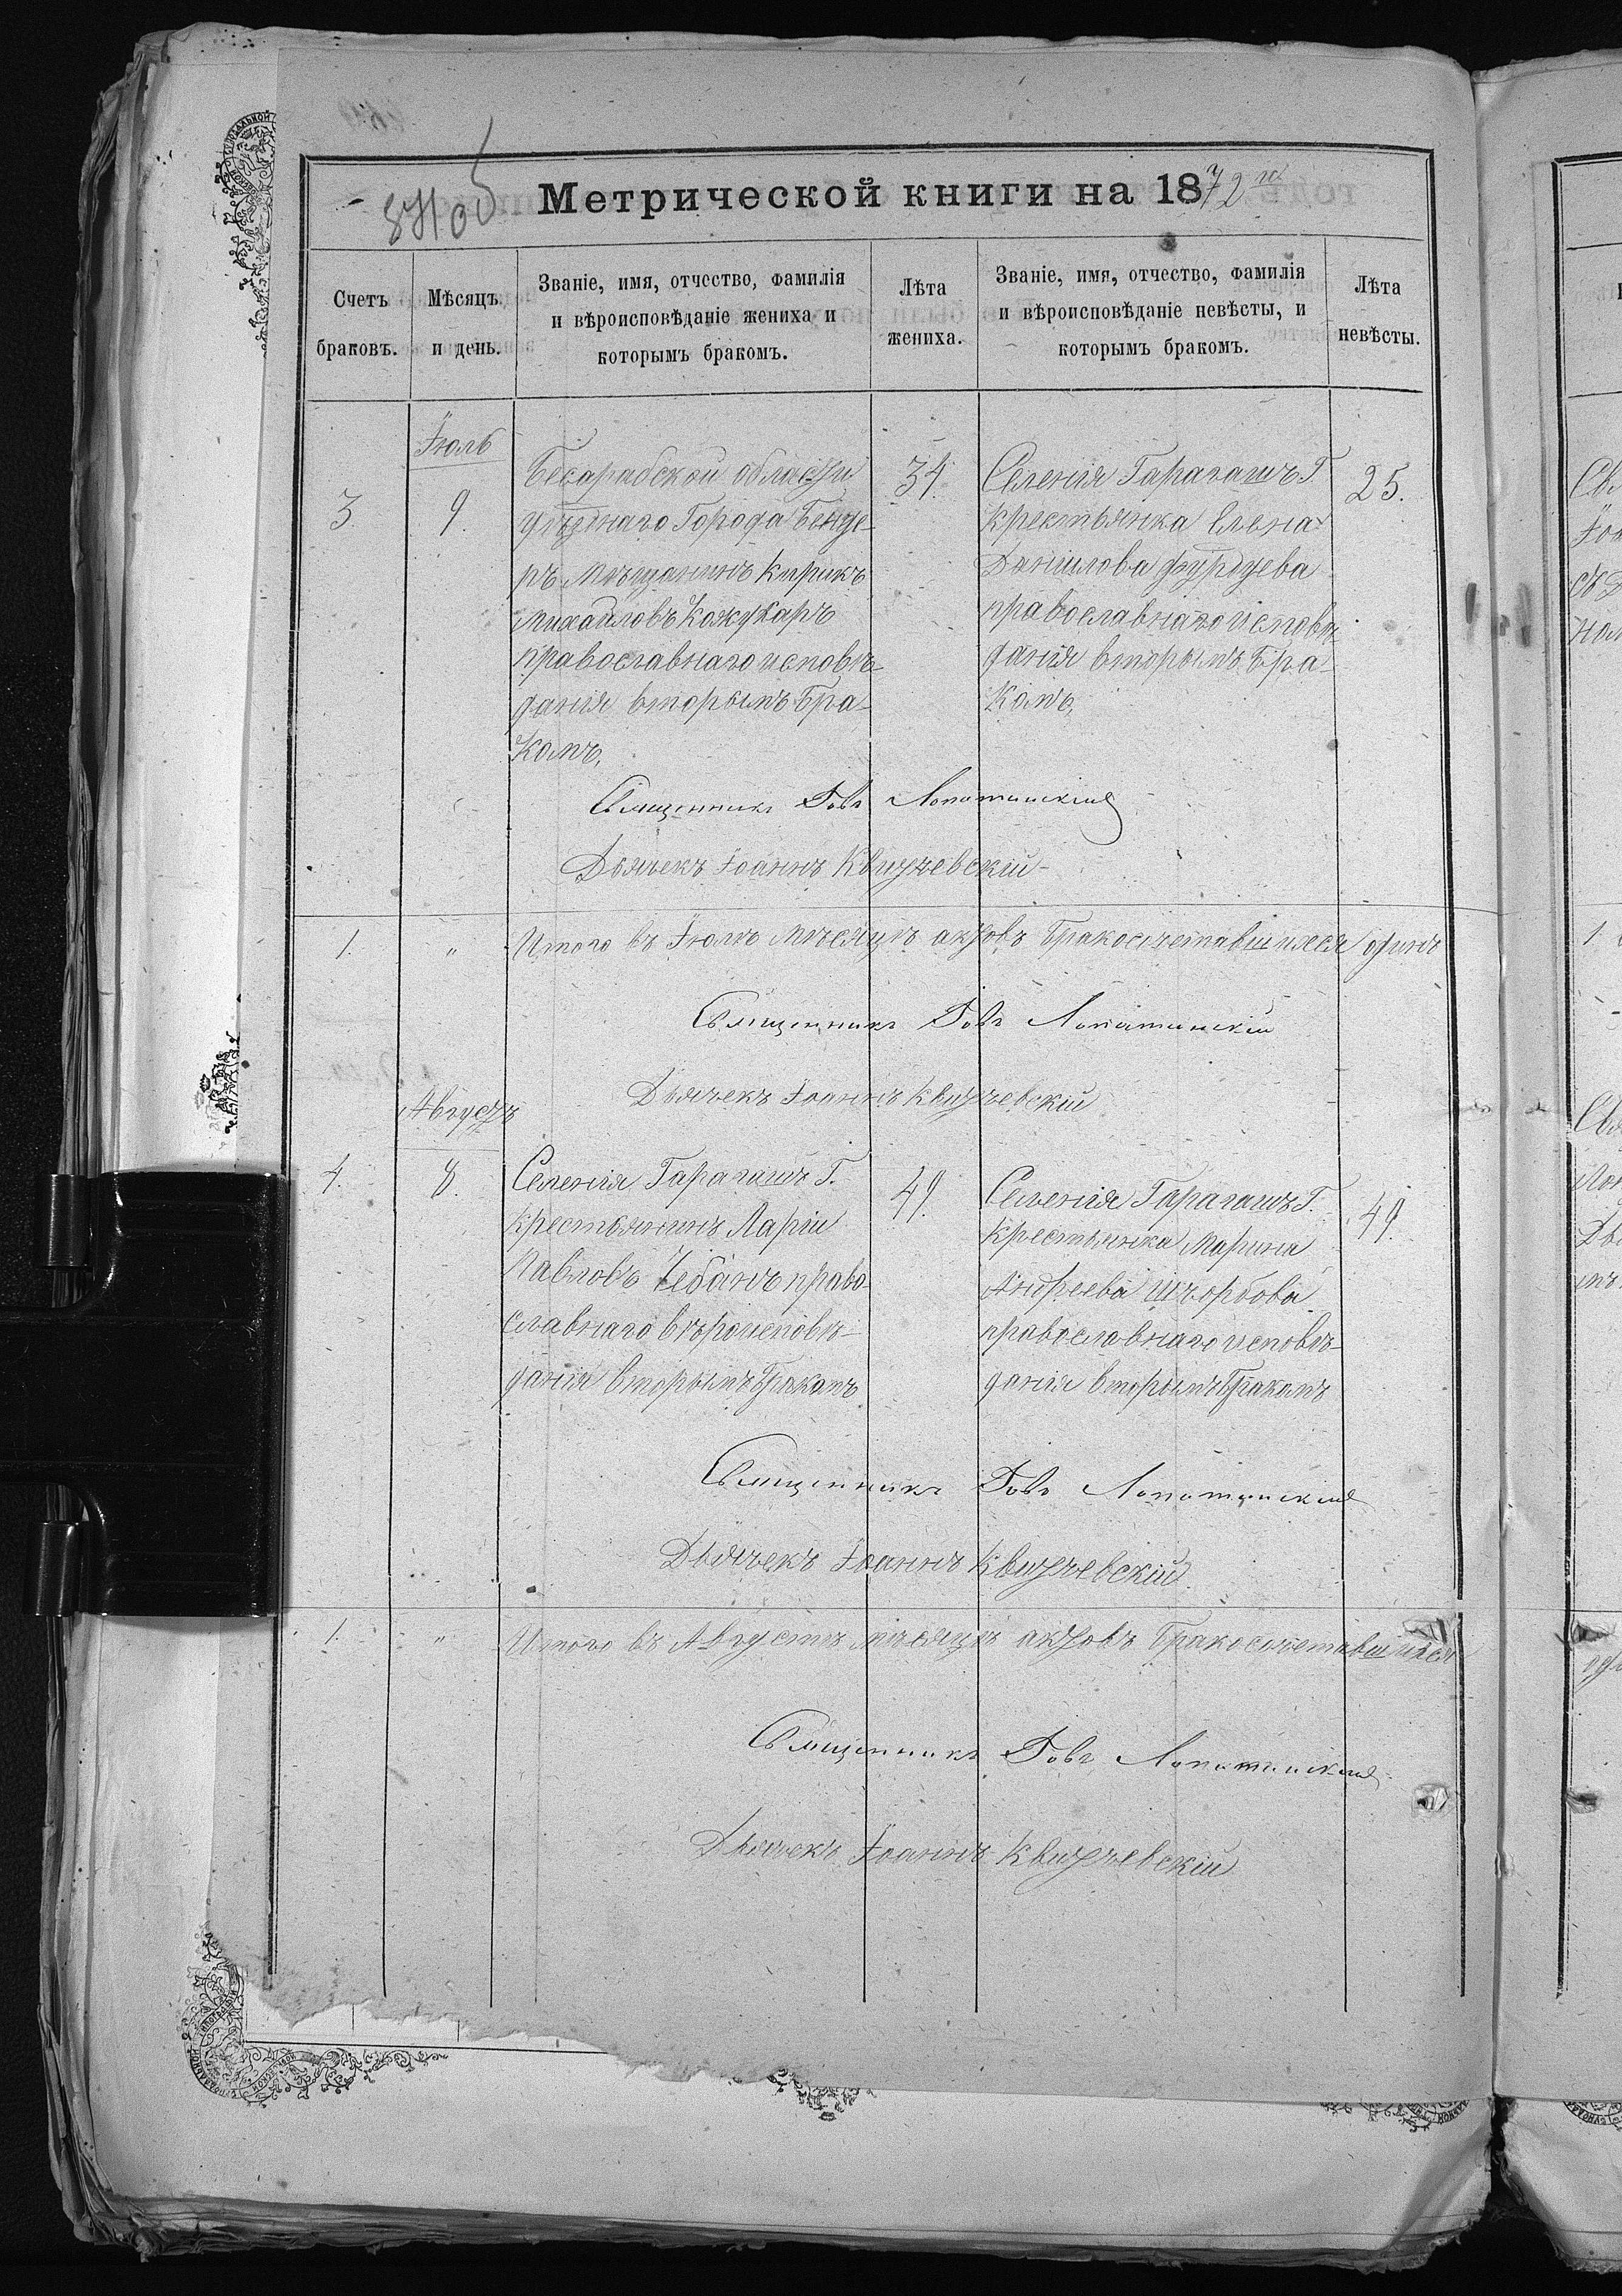 Метрической книги на 1872 го
Счетъ браковъ.
Мѣсяцъ и день.
Званіе, имя, отчество, фамилія
и вѣроисповѣданіе жениха и
которымъ бракомъ.
Лѣта
жениха.
Званіе, имя, отчество, фамилія
и вѣроисповѣданіе невѣсты, и
которымъ бракомъ.
Лѣта
невѣсты.
Іюль
3
9.
Бесарабской области
уѣзднаго Города Бенде-
ръ мѣщанинъ Кирикъ
Михаиловъ Кожукарь
православнаго исповѣ-
данія вторымъ Бра-
комъ,
34.
Селенія Гарагашъ Г.
крестьянка Елена
Даниилова Фурдуева
православнаго исповѣ-
данія вторымъ Бра-
комъ,
25.
Священникъ Іовъ Лопатинскій
Дьячекъ Іоаннъ Квитчевскій
1.
"
Итого въ Іюлѣ мѣсяцѣ актовъ Бракосочетавшихся одинъ
Священникъ Іовъ Лопатинскій
Дьячекъ Іоаннъ Квитчевскій
Августъ
4.
8.
Селенія Гарагашъ Г.
крестьянинъ Ларіи
Павловъ Чебанъ право-
славнаго вѣроисповѣ-
данія вторымъ Бракомъ
49.
Селенія Гарагашъ Г.
крестьянка Марина
Андреева
православнаго исповѣ-
данія вторымъ Бракомъ
49.
Священникъ Іовъ Лопатинскій
Дьячекъ Іоаннъ Квитчевскій
1.
"
Итого въ Августѣ мѣсяцѣ актовъ Бракосочетавшихся
Священникъ Іовъ Лопатинскій
Дьячекъ Іоаннъ Квитчевскій